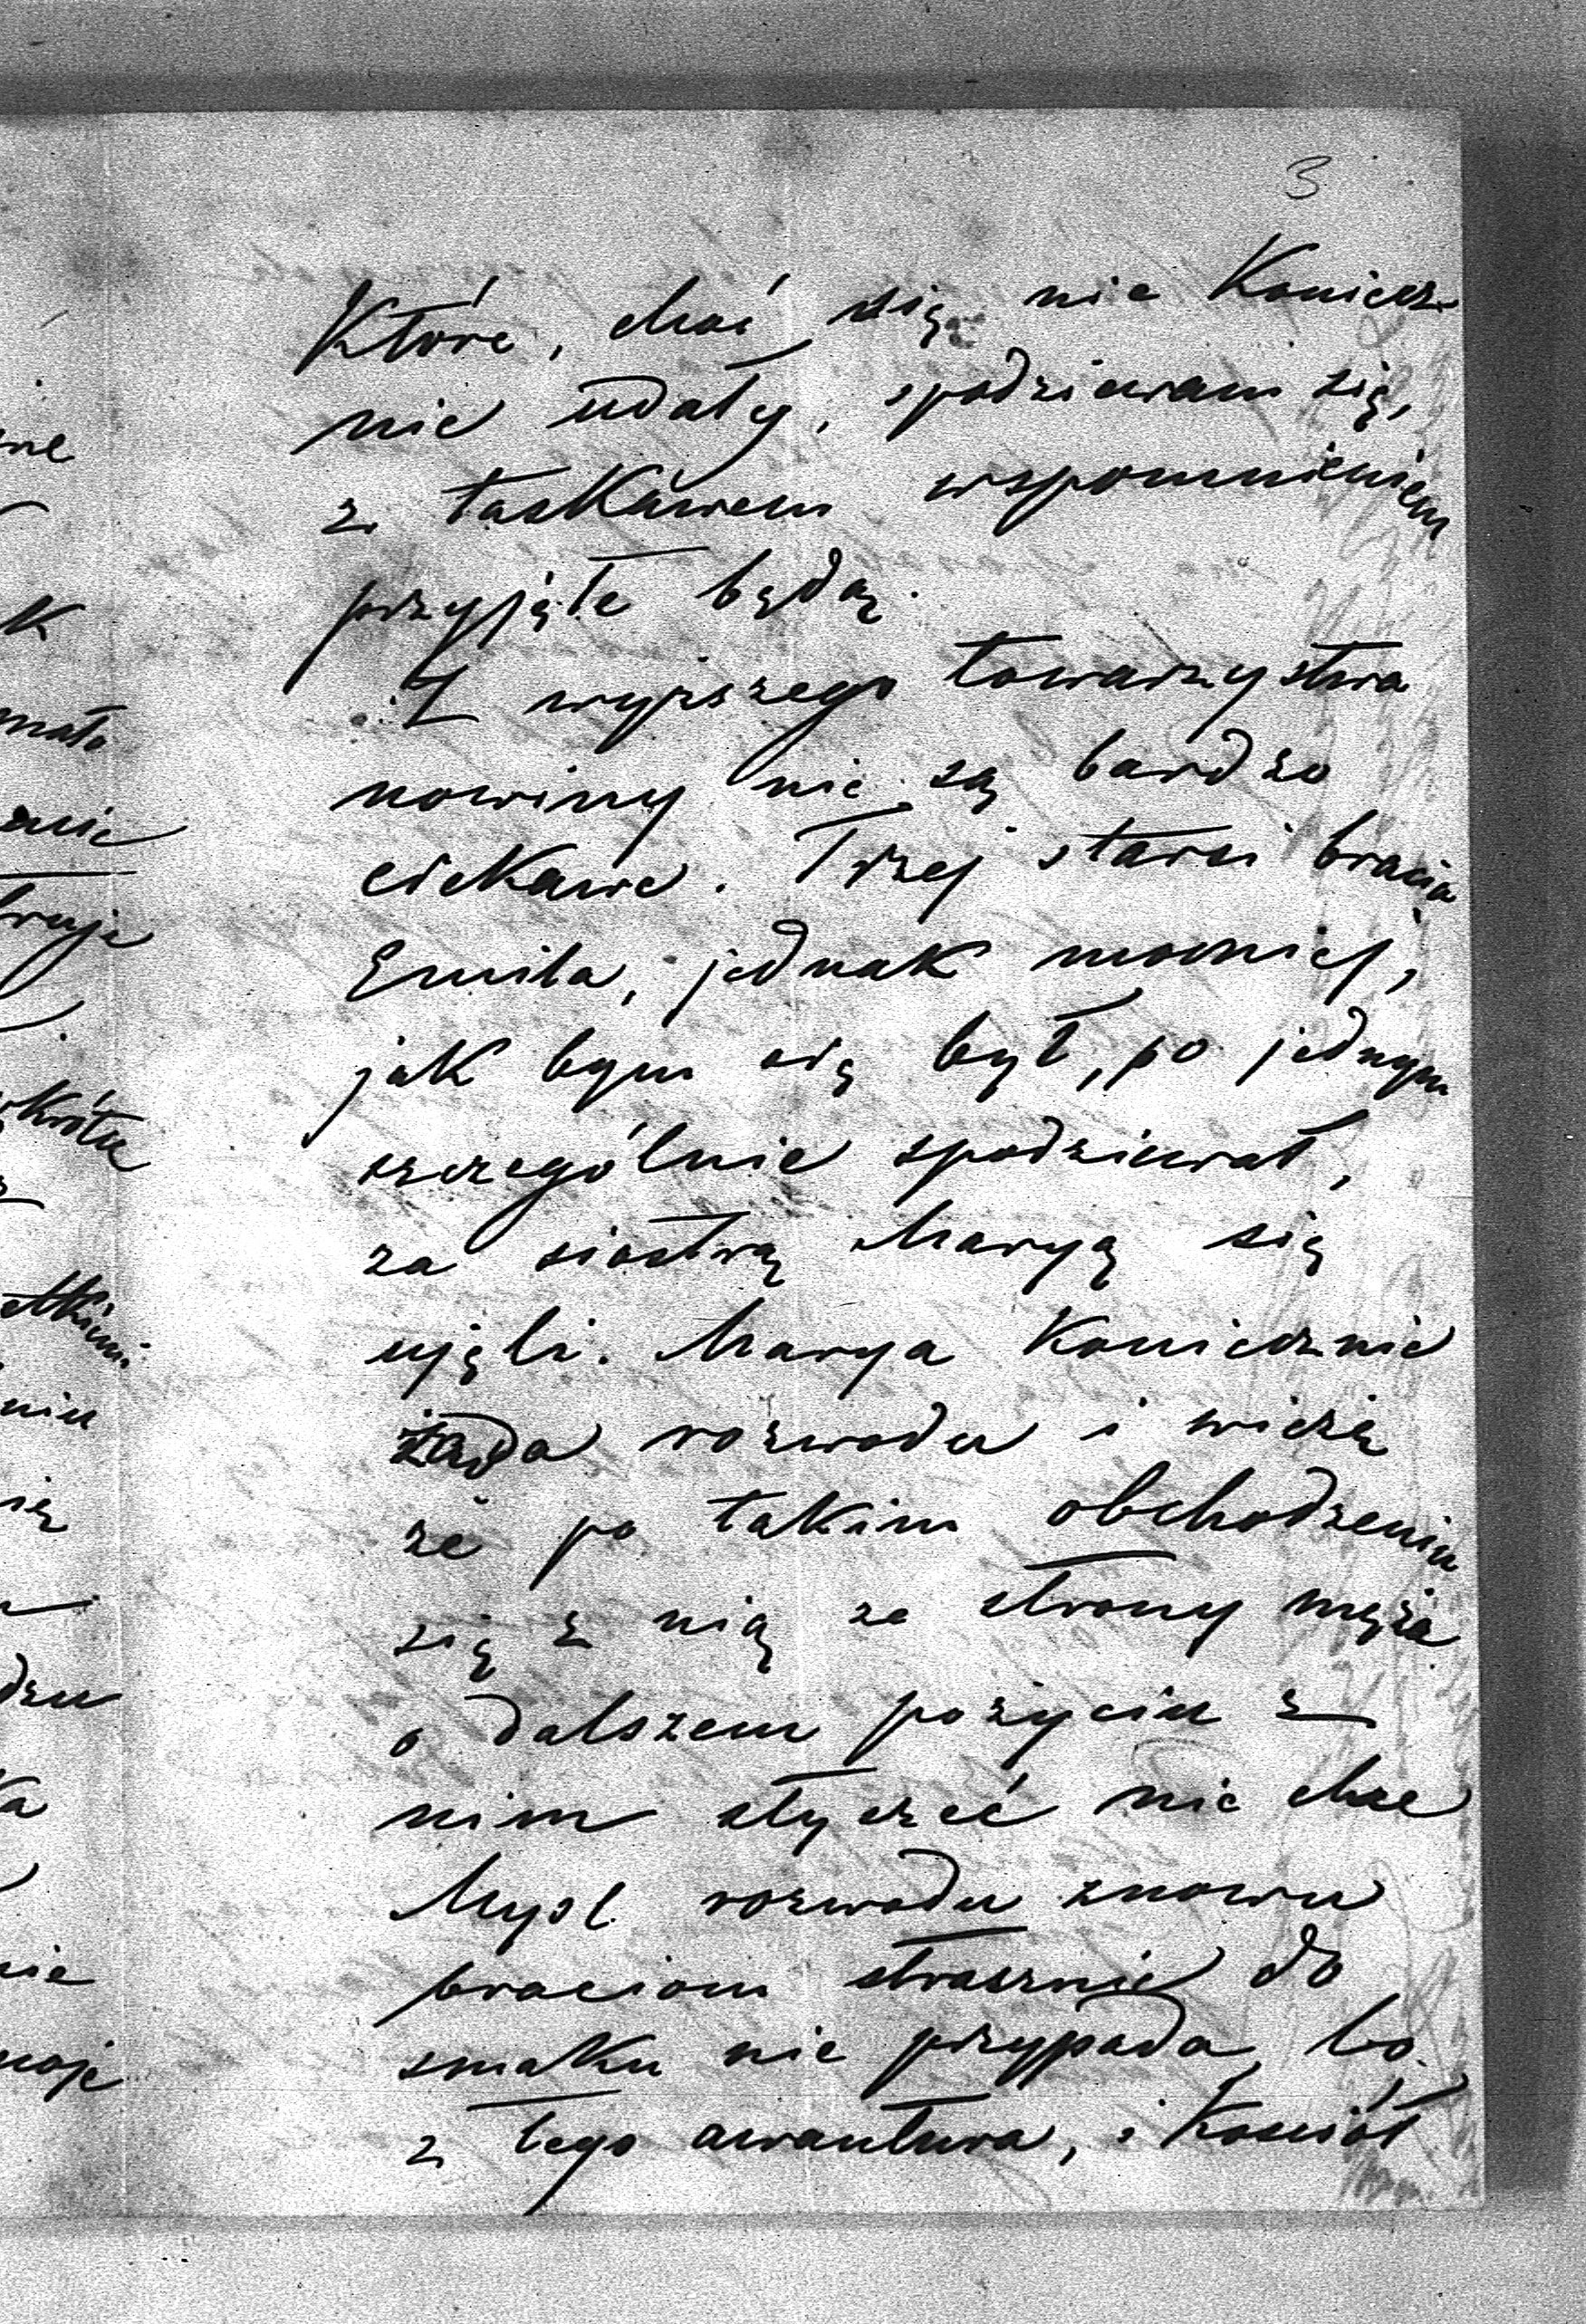 3
Które, choć się nie Koniecz-
nie udały, spodziewam się,
z łaskawem wspomnieniem
przyjęte będą.
Z wyższego towarzystwa
nowiny nie są bardzo
ciekawe. Trzej starsi bracia
Emila, jednak mocniej,
jak bym się był, po jednym
szczególnie spodziewał,
za siostrą Maryą się
ujęli. Marya Koniecznie
żąda rozwodu i wierzę
że po takim obchodzeniu
się z nią ze strony męża
o dalszem pożyciu z
nim słyszeć nie chce
Myśl rozwodu znowu
braciom strasznie do
smaku nie przypada, bo
z tego awantura, i Kościół
ne
K
mało
anie
truje
Krótce
niu
się
dzu
ka
nie
moje